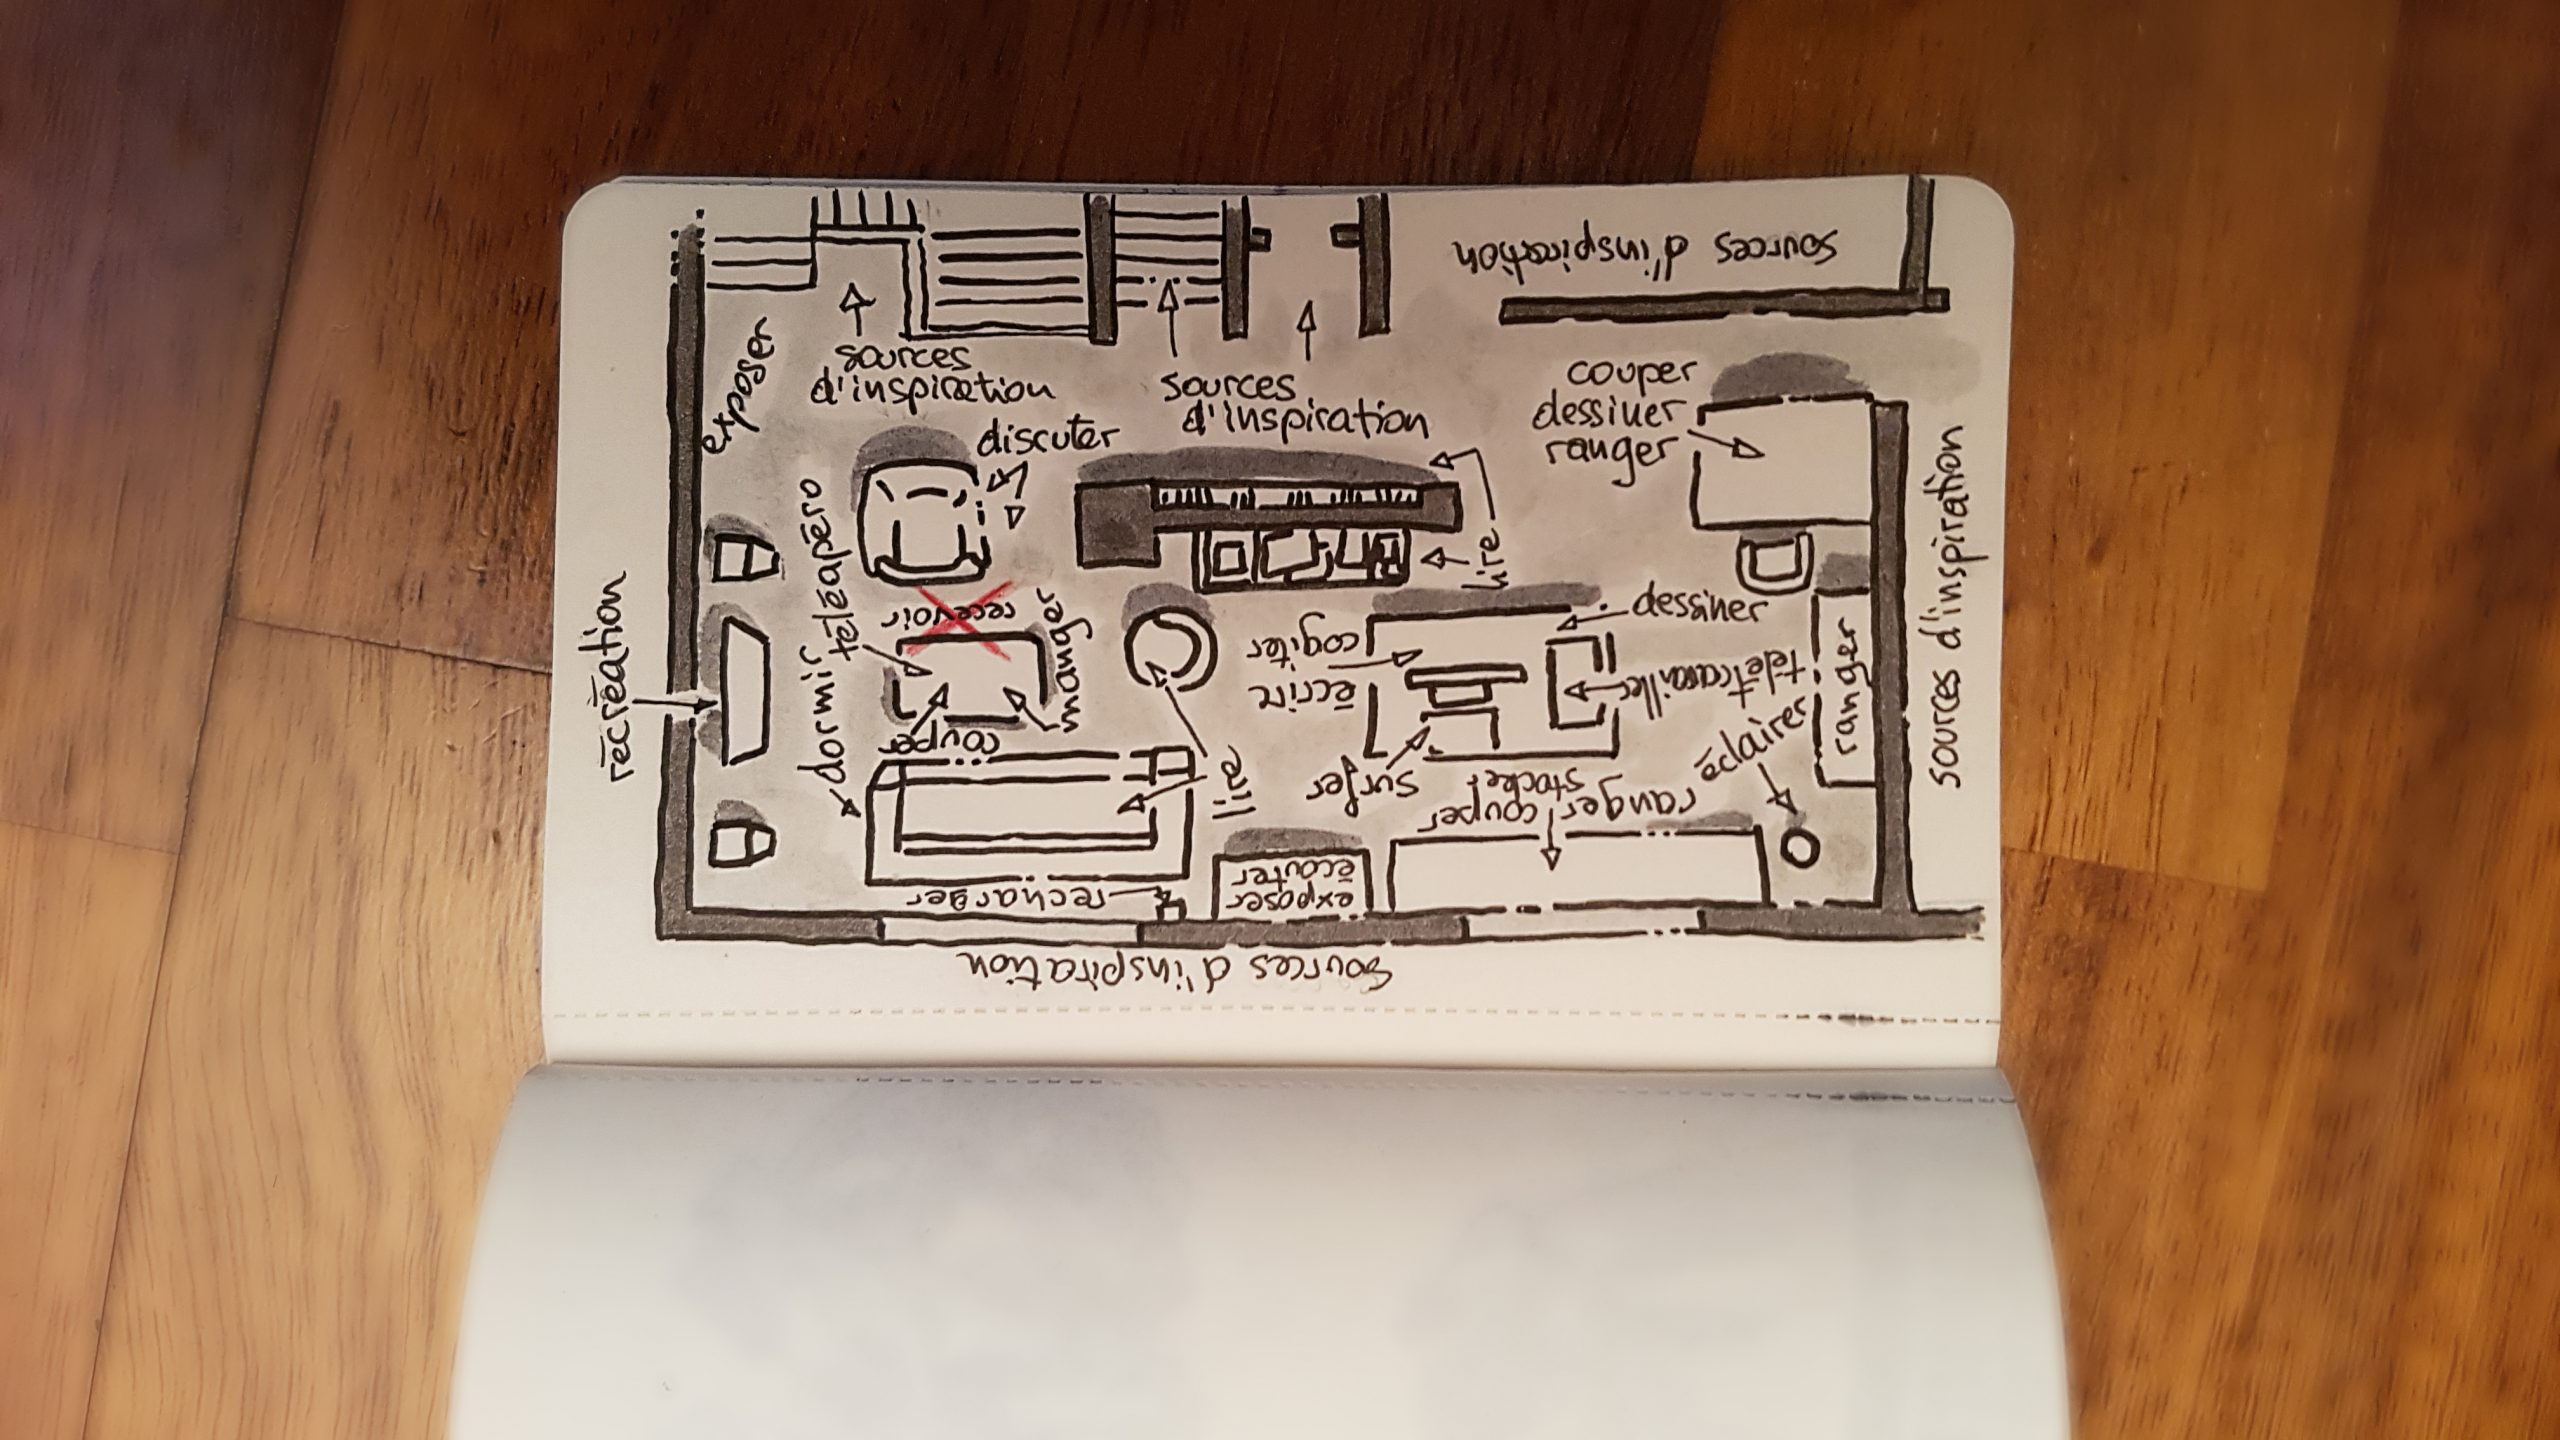 sources d'inspiration
exposer
sources
d'inspiration
sources
d'inspiration
couper
dessiner
ranger
discuter
sources d'inspiration
téléapéro
lire
recevoir
manger
dessiner
cogiter
écrire
télétravailler
ranger
récréation
dormir
couper
éclairer
lire
surfer
stocker
ranger
couper
écouter
exposer
recharger
sources d'inspiration